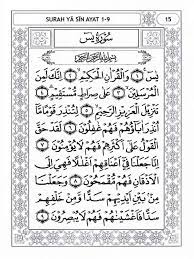 SURAH YĀ SĪN AYAT 1-9 15
سُورَةُ يٰسٓ
بِسْمِ اللَّهِ الرَّحْمَٰنِ الرَّحِيمِ
يٰسٓ ﴿١﴾ وَالْقُرْآنِ الْحَكِيمِ ﴿٢﴾ إِنَّكَ لَمِنَ
الْمُرْسَلِينَ ﴿٣﴾ عَلَىٰ صِرَاطٍ مُسْتَقِيمٍ ﴿٤﴾
تَنْزِيلَ الْعَزِيزِ الرَّحِيمِ ﴿٥﴾ لِتُنْذِرَ قَوْمًا مَا
أُنْذِرَ آبَاؤُهُمْ فَهُمْ غَافِلُونَ ﴿٦﴾ لَقَدْ حَقَّ
الْقَوْلُ عَلَىٰ أَكْثَرِهِمْ فَهُمْ لَا يُؤْمِنُونَ ﴿٧﴾
إِنَّا جَعَلْنَا فِي أَعْنَاقِهِمْ أَغْلَالًا فَهِيَ إِلَى
الْأَذْقَانِ فَهُمْ مُقْمَحُونَ ﴿٨﴾ وَجَعَلْنَا
مِنْ بَيْنِ أَيْدِيهِمْ سَدًّا وَمِنْ خَلْفِهِمْ
سَدًّا فَأَغْشَيْنَاهُمْ فَهُمْ لَا يُبْصِرُونَ ﴿٩﴾